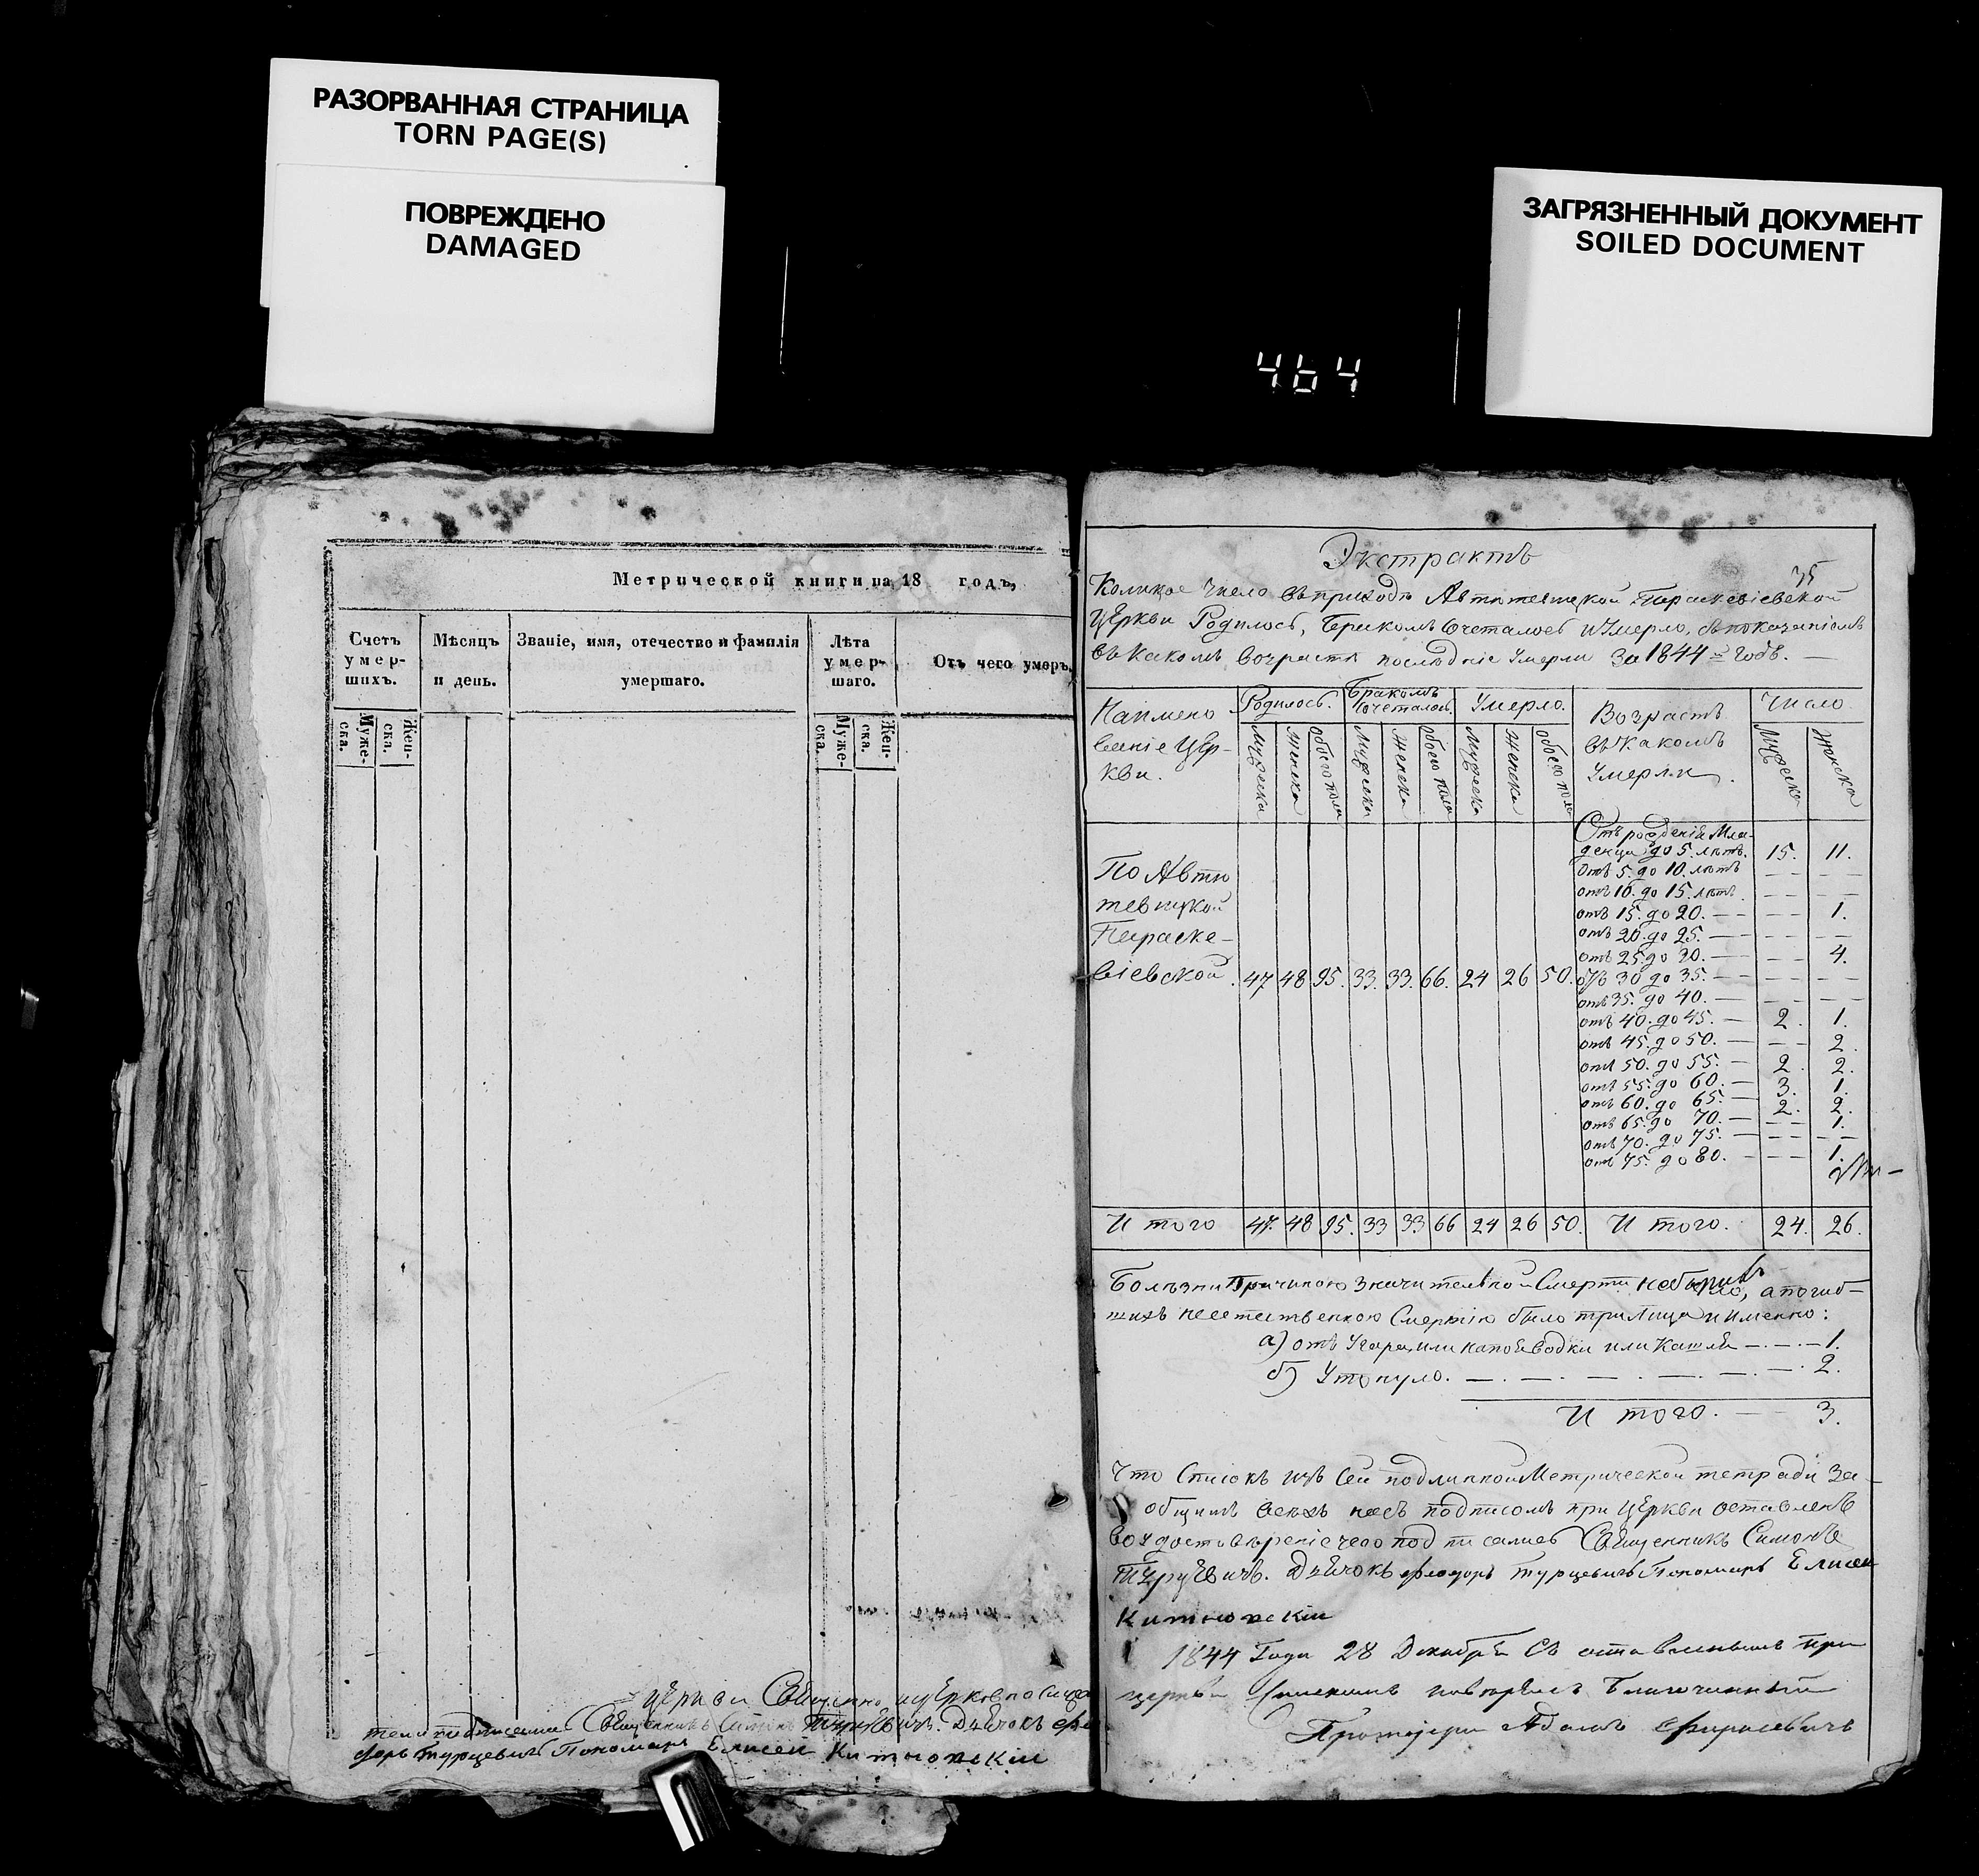 РАЗОРВАННАЯ СТРАНИЦА
TORN PAGE(S)
ПОВРЕЖДЕНО
DAMAGED
ЗАГРЯЗНЕННЫЙ ДОКУМЕНТ
SOILED DOCUMENT
464
Метрической книги на 18 годъ,
Счетъ умер-шихъ.
Мѣсяцъ и день.
Званіе, имя, отечество и фамилія умершаго.
Лѣта умер-шаго.
Отъ чего умеръ,
Муже-ска.
Жен-ска.
Муже-ска.
Жен-ска.
Церкви Священно церковно служи
тели подписались Священникъ Симонъ Турцевичъ. Дьячокъ Фео
доръ Турцевичъ Пономарь Елисей Китновскій
Экстрактъ
75
Коликое число въ приходѣ Автютевицкой Параскевіевской
Церкви Родилось, Бракомъ Сочеталось и Умерло, съ показаніемъ
въ какомъ возрастѣ послѣдніе Умерли за 1844й Годъ. —
Наимено
ваніе Цер-
кви.
Родилось.
Бракомъ Сочеталось.
Умерло.
Возрастъ
въ какомъ
Умерли.
Число
Мужеска Женска обоего пола Мужеска Женска обоего пола Мужеска Женска обоего пола Мужеска Женска
По Автю
тевицкой
Параске-
віевской. 47 48 95. 33. 33. 66. 24 26 50.
Отъ рожденія Мла-
денца до 5. лѣтъ. 15. 11.
отъ 5. до 10. лѣтъ — — — —
отъ 10. до 15. лѣтъ. — — — —
отъ 15. до 20. — — — — 1.
отъ 20. до 25. — — — — —
отъ 25 до 30. — — — 4.
отъ 30 до 35. — — — — —
отъ 35. до 40. — — — — —
отъ 40. до 45. — 2. 1.
отъ 45. до 50. — — — 2.
отъ 50. до 55. — 2. 2.
отъ 55. до 60. — 3. 1.
отъ 60. до 65. — 2. 2.
отъ 65. до 70. — — — 1.
отъ 70. до 75. — — — — —
отъ 75. до 80. — — — 1.
Итого 47. 48 95. 33 33 66 24 26 50. Итого. 24. 26.
Болѣзни Причиною значительной Смерти небыло, а погиб-
шихъ неестественною Смертію было три лица и именно:
а) отъ Угара, или напоя водки или Кашля — . — . — 1.
б) Утонуло. — . — . — . — . — 2.
Итого. — — 3.
Что Списокъ изъ Сей подлинной Метрической тетради За
общимъ всехъ насъ подписомъ при Церкви оставленъ
во удостовѣреніе чего подписались Священникъ Симонъ
Турцевичъ. Дьячокъ Феодоръ Турцевичъ Пономарь Елисей
Китновскій
1844 Года 28 Декабря Съ оставленнымъ при
церкви Спискомъ повѣрялъ Благочинный
Протоіерей Адамъ